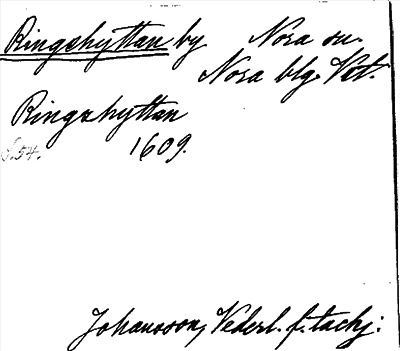 Ringshyttan by Nora sn.
Nora blg. Vstl.
Ringshyttan
S. 54. 1609.
Johansson, Vederl. f. tackj: